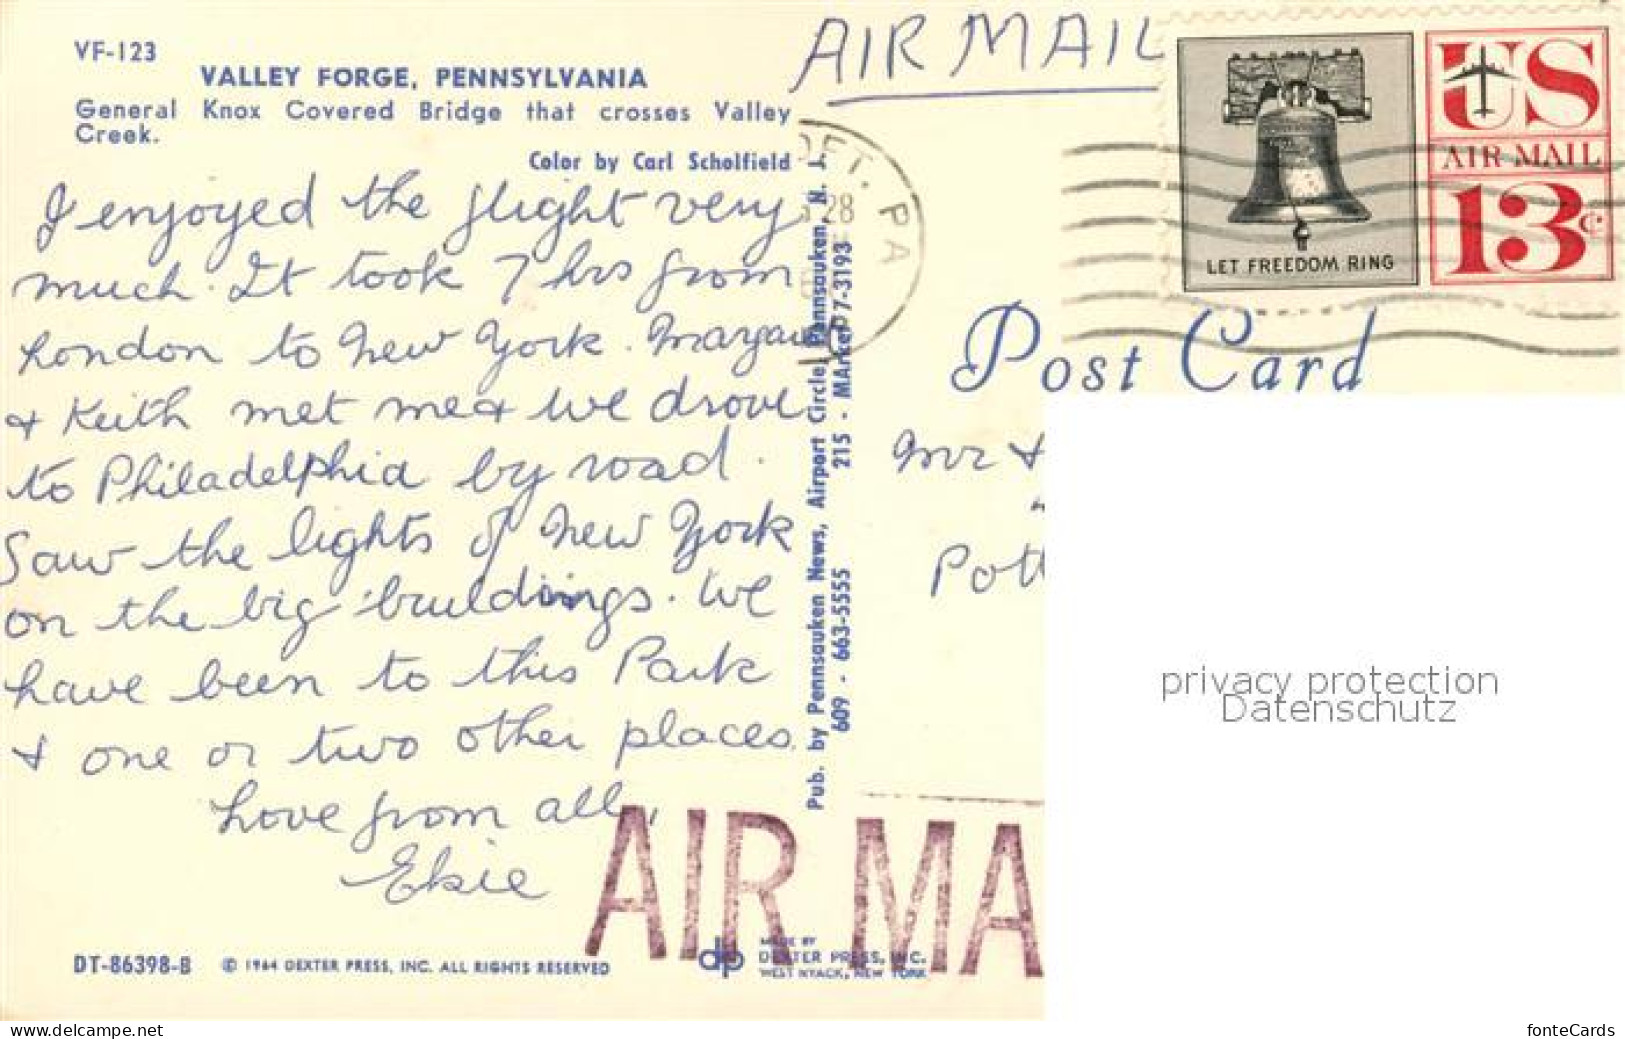 VF-123
VALLEY FORGE, PENNSYLVANIA
General Knox Covered Bridge that crosses Valley
Creek.
Color by Carl Scholfield
I enjoyed the flight very
much. It took 7 hrs from
London to New York.
& Keith met me & we drove
to Philadelphia by road.
Saw the lights of New York
on the big buildings. We
have been to this Park
& one or two other places.
Love from all,
Elsie
DT-86398-B © 1964 DEXTER PRESS, INC. ALL RIGHTS RESERVED
Pub. by Pennsauken News, Airport Circle, Pennsauken, N. J.
609 - 663-5555 215 - MArket 7-3193
AIR MAIL
PA
28
LET FREEDOM RING
US
AIR MAIL
13¢
Post Card
Mr &
Pott
privacy protection
Datenschutz
AIR MA
dp
MADE BY
DEXTER PRESS, INC.
WEST NYACK, NEW YORK
www.delcampe.net
fonteCards